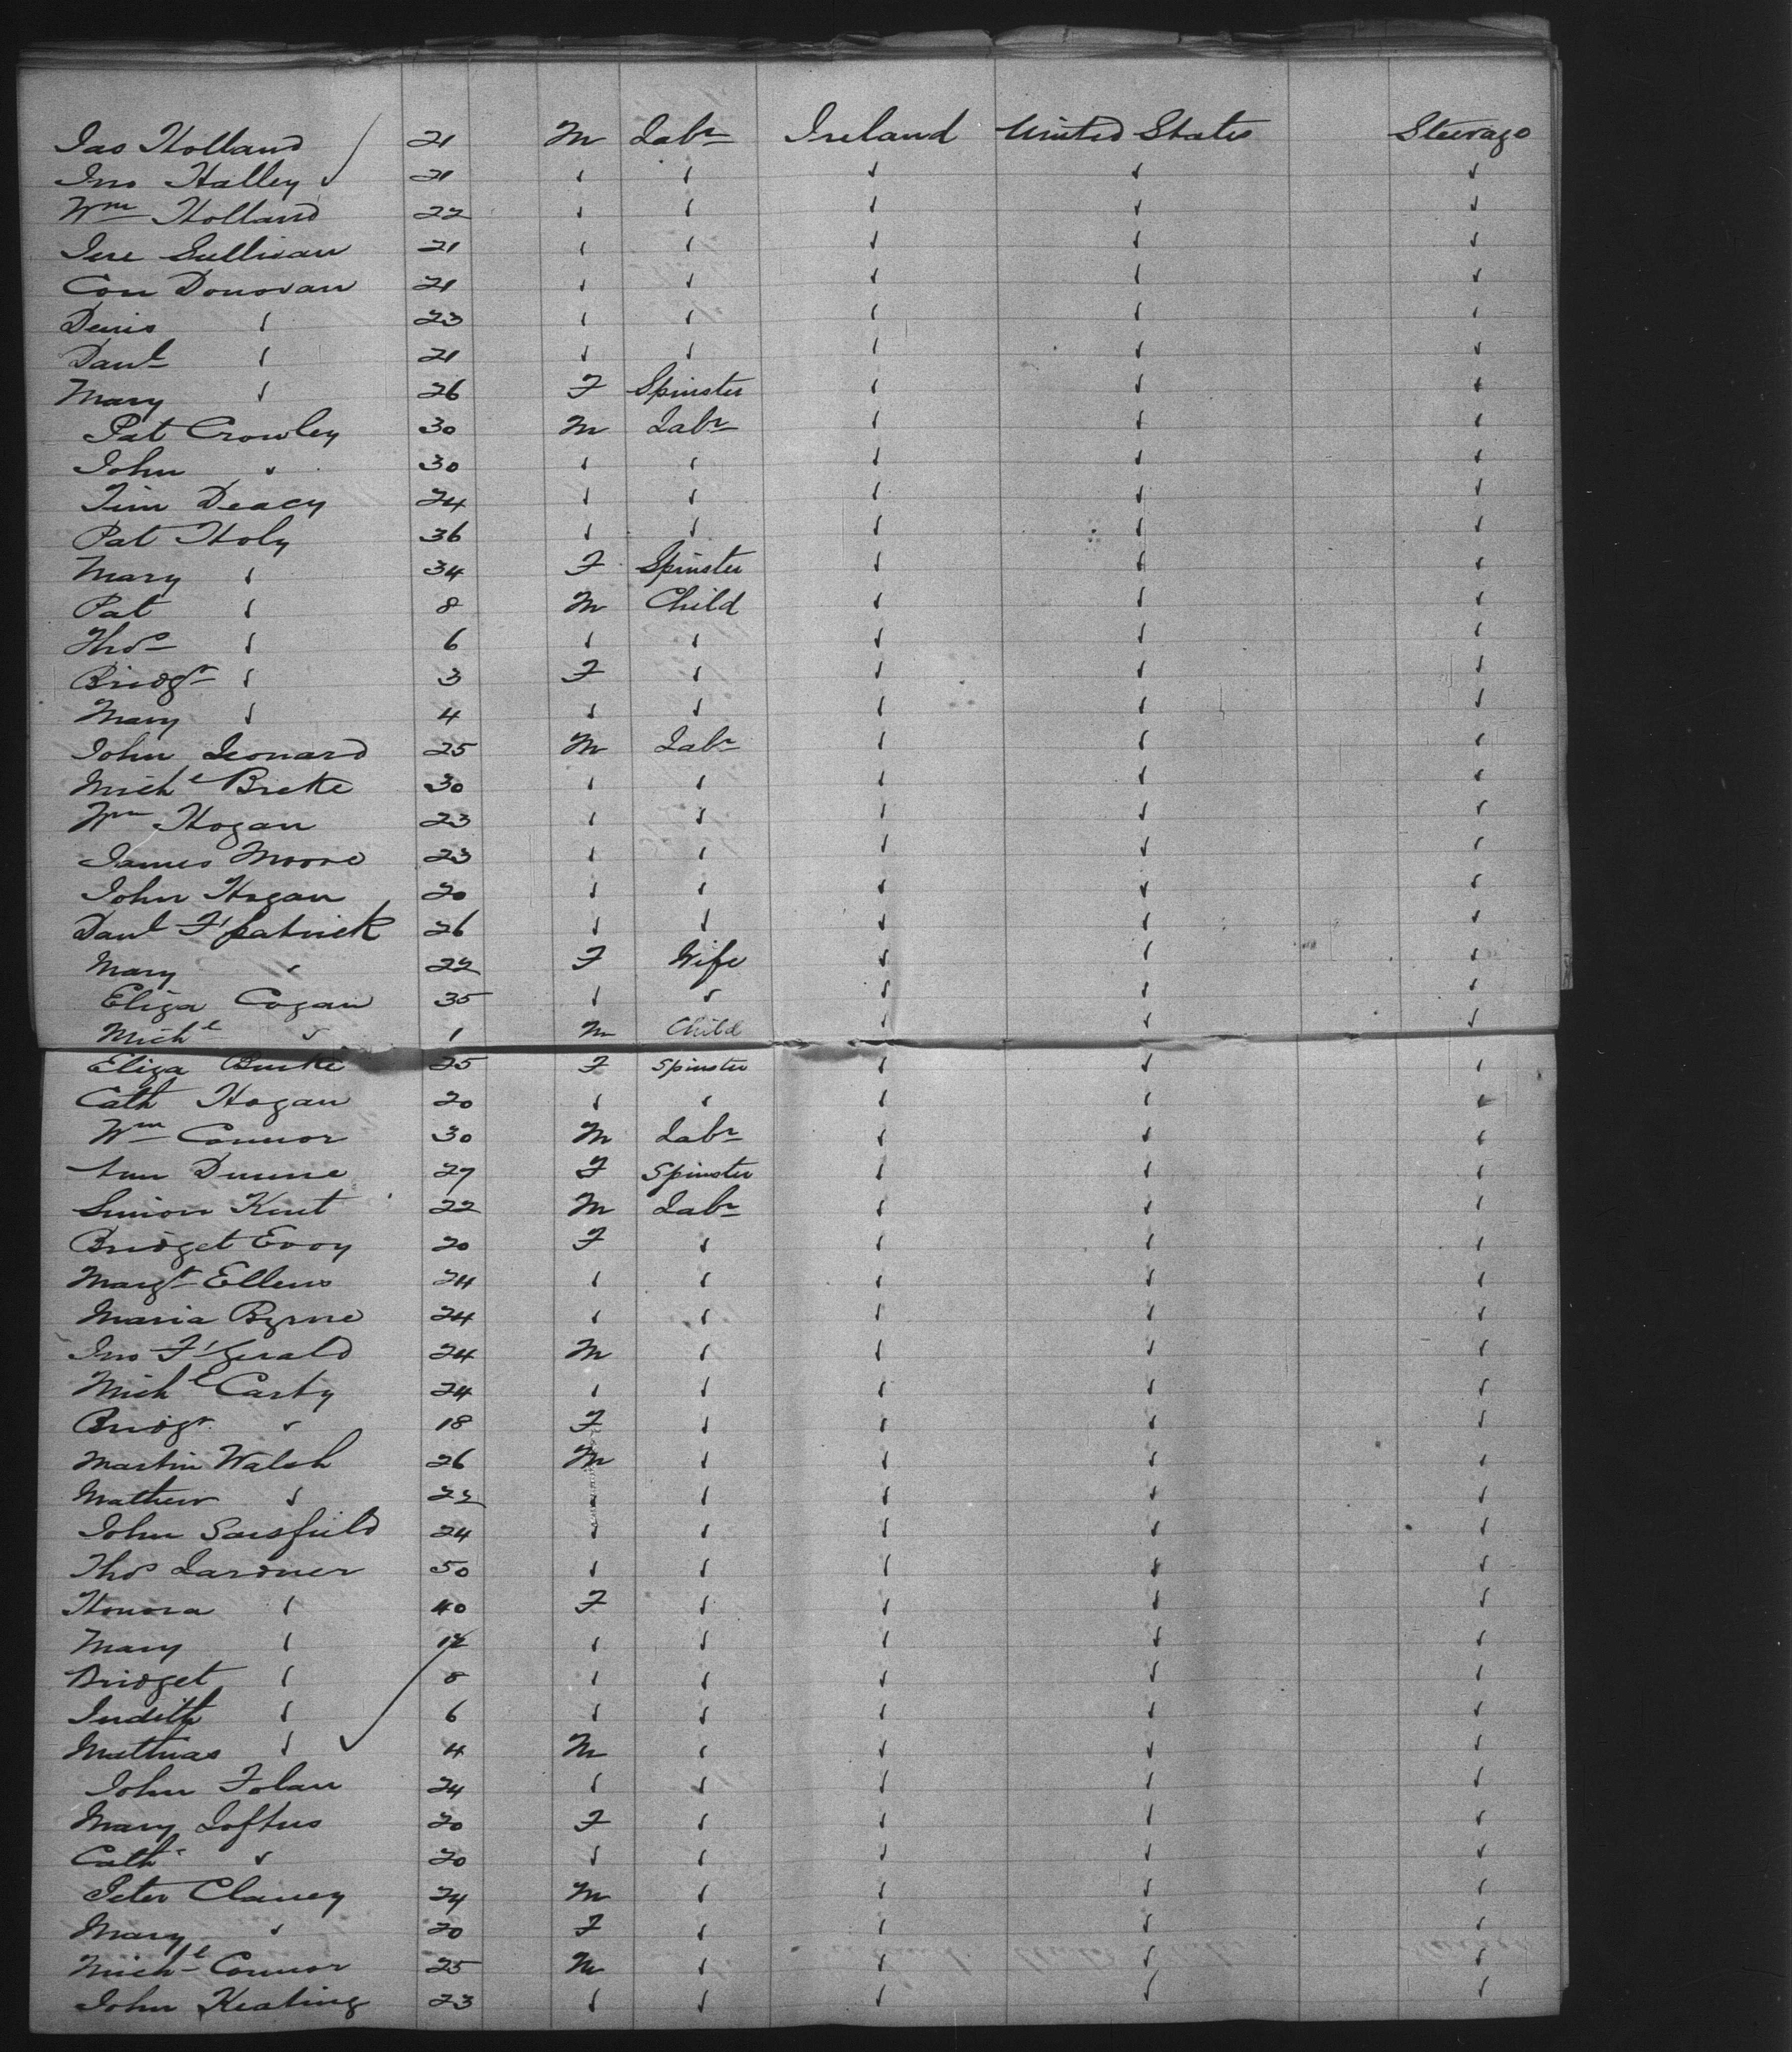 Jas Holland 21 M Labr Ireland United States Steerage
Jno Halley 21 " " " " "
Wm Holland 22 " " " " "
Jere Sullivan 21 " " " " "
Con Donovan 21 " " " " "
Denis " 23 " " " " "
Danl " 21 " " " " "
Mary " 26 F Spinster " " "
Pat Crowley 30 M Labr " " "
John " 30 " " " " "
Tim Deacy 24 " " " " "
Pat Holy 36 " " " " "
Mary " 34 F Spinster " " "
Pat " 8 M Child " " "
Thos " 6 " " " " "
Bridgt " 3 F " " " "
Mary " 4 " " " " "
John Leonard 25 M Labr " " "
Michl 30 " " " " "
Wm Hogan 23 " " " " "
James Moore 23 " " " " "
John Hogan 20 " " " " "
Danl F'patrick 26 " " " " "
Mary " 22 F Wife " " "
Eliza Cogan 35 " " " " "
Michl " 1 M Child " " "
Eliza Burke 25 F Spinster " " "
Cath Hogan 20 " " " " "
Wm Connor 30 M Labr " " "
Ann Dunne 27 F Spinster " " "
Simon Kent 22 M Labr " " "
Bridget Evoy 20 F " " " "
Margt Ellens 24 " " " " "
Maria Byrne 24 " " " " "
Jno F'Gerald 24 M " " " "
Michl Carty 24 " " " " "
Bridgt " 18 F " " " "
Martin Walsh 26 M " " " "
Mathew " 22 " " " " "
John Sarsfield 24 " " " " "
Thos Lardner 50 " " " " "
Honora " 40 F " " " "
Mary " 12 " " " " "
Bridget " 8 " " " " "
Judith " 6 " " " " "
Mathias " 4 M " " " "
John Folan 24 " " " " "
Mary Loftus 20 F " " " "
Cath " 20 " " " " "
Peter Clancy 24 M " " " "
Mary " 20 F " " " "
Michl Connor 25 M " " " "
John Keating 23 " " " " "